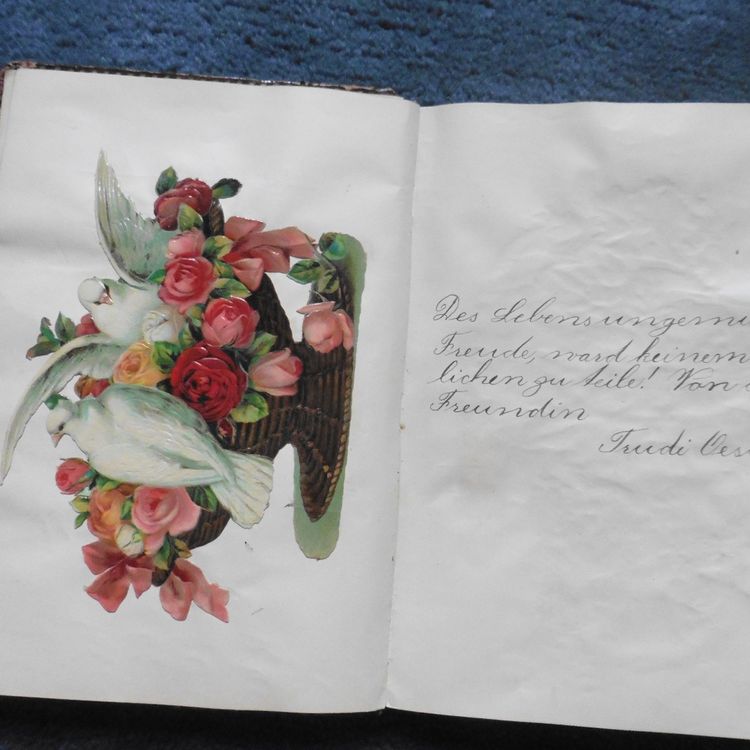 Des Lebens ungemi
Freude, ward keinem
lichen zu teile! Von
Freundin
Trudi Oes